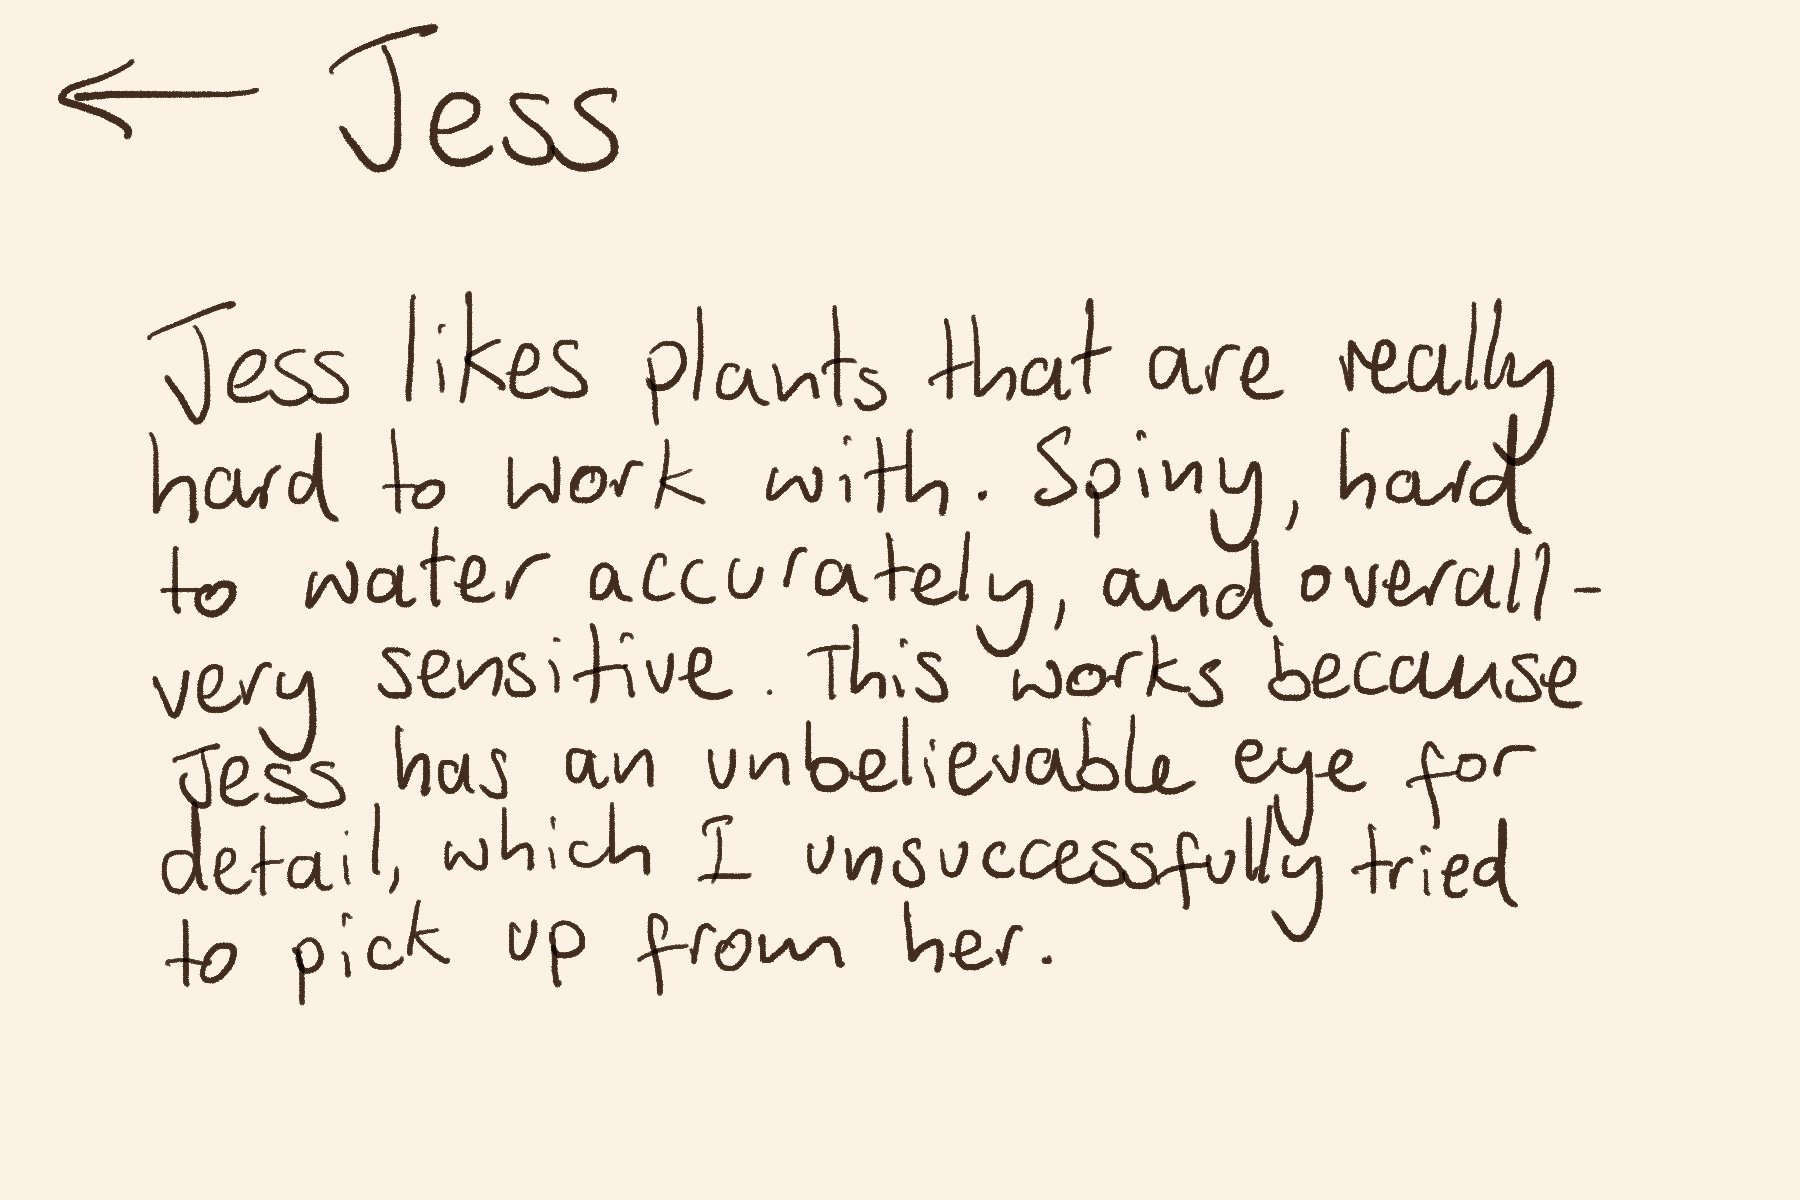 ← Jess
Jess likes plants that are really
hard to work with. Spiny, hard
to water accurately, and overall -
very sensitive. This works because
Jess has an unbelievable eye for
detail, which I unsuccessfully tried
to pick up from her.